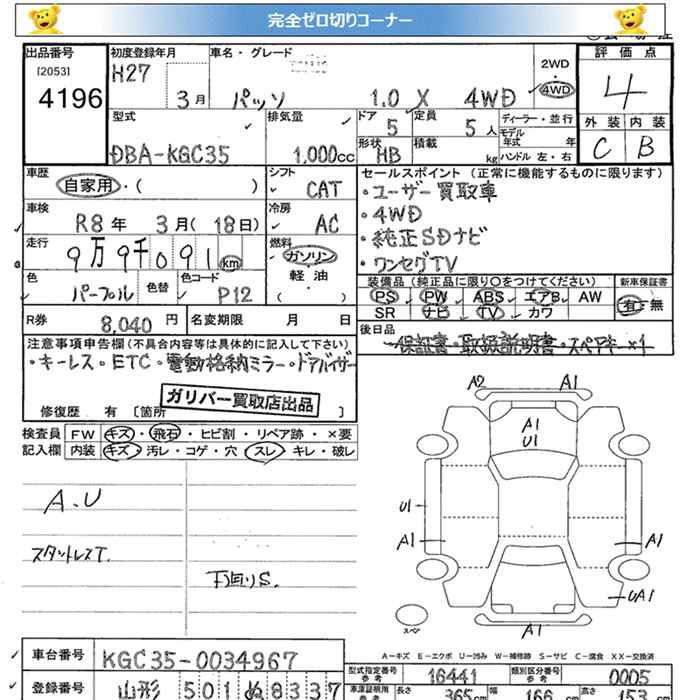 完全ゼロ切りコーナー
出品番号
[2053]
4196
初度登録年月
H27
3月
車名・グレード
パッソ 1.0 X 4WD
2WD
4WD
評価点
4
外装 内装
C B
型式
DBA-KGC35
排気量
1,000cc
ドア
5
定員
5人
形状
HB
積載
kg
ディーラー・並行
モデル年式 年
ハンドル 左・右
車歴
自家用・( )
シフト
CAT
車検
R8年 3月(18日)
冷房
AC
走行
9万9千091 km
燃料
ガソリン
軽油
( )
色
パープル
色替
色コード
P12
R券
8,040円
名変期限 月 日
セールスポイント(正常に機能するものに限ります)
・ユーザー買取車
・4WD
・純正SDナビ
・ワンセグTV
装備品(純正品に限り○をつけてください)
PS PW ABS エアB AW
SR ナビ TV カワ
新車保証書
有・無
後日品
保証書・取扱説明書・スペアキー×1
注意事項申告欄(不具合内容等は具体的に記入して下さい)
・キーレス・ETC・電動格納ミラー・ドアバイザー
ガリバー買取店出品
修復歴 有 [箇所 ]
検査員 FW キズ・飛石・ヒビ割・リペア跡・×要
記入欄 内装 キズ・汚レ・コゲ・穴 スレ・キレ・破レ
A.U
スタットレスT.
下回りS.
A2 A1
A1
U1
U1
A1 A1
UA1
A1
スペア
A-キズ E-エクボ U-凹み W-補修跡 S-サビ C-腐食 XX-交換済
車台番号
KGC35-0034967
登録番号
山形 501 ぬ8337
型式指定番号
参考
16441
類別区分番号
参考
0005
車庫証明用
参考
長さ 365cm 幅 166cm 高さ 153cm